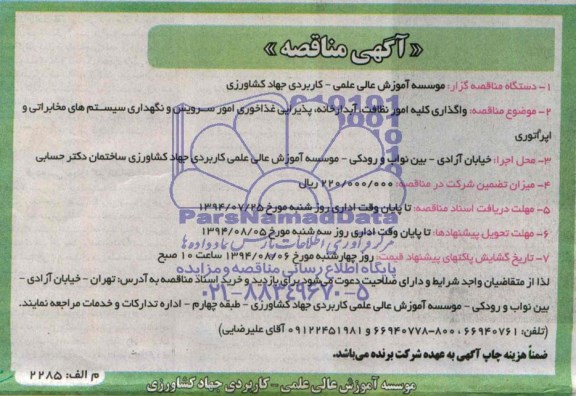 «آگهی مناقصه»
۱- دستگاه مناقصه گزار: موسسه آموزش عالی علمی - کاربردی جهاد کشاورزی
۲- موضوع مناقصه: واگذاری کلیه امور نظافت، آبدارخانه، پذیرایی غذاخوری امور سرویس و نگهداری سیستم های مخابراتی و
اپراتوری
۳- محل اجرا: خیابان آزادی - بین نواب و رودکی - موسسه آموزش عالی علمی کاربردی جهاد کشاورزی ساختمان دکتر حسابی
۴- میزان تضمین شرکت در مناقصه: ۲۲۰/۰۰۰/۰۰۰ ریال
۵- مهلت دریافت اسناد مناقصه: تا پایان وقت اداری روز شنبه مورخ ۱۳۹۴/۰۷/۲۵
ParsNamadData
۶- مهلت تحویل پیشنهادها: تا پایان وقت اداری روز سه شنبه مورخ ۱۳۹۴/۰۸/۰۵
مرکز فرآوری اطلاعات پارس نماد داده ها
۷- تاریخ گشایش پاکتهای پیشنهاد قیمت: روز چهارشنبه مورخ ۱۳۹۴/۰۸/۰۶ ساعت ۱۰ صبح
پایگاه اطلاع رسانی مناقصه و مزایده
لذا از متقاضیان واجد شرایط و دارای صلاحیت دعوت می‌شود برای بازدید و خرید اسناد مناقصه به آدرس: تهران - خیابان آزادی -
۰۲۱-۸۸۳۴۹۶۷۰-۵
بین نواب و رودکی - موسسه آموزش عالی علمی کاربردی جهاد کشاورزی - طبقه چهارم - اداره تدارکات و خدمات مراجعه نمایند.
(تلفن: ۶۶۹۴۰۷۶۱ ، ۸۰۰-۶۶۹۴۰۷۷۸ و ۰۹۱۲۲۴۵۱۹۸۱ آقای علیرضایی)
ضمناً هزینه چاپ آگهی به عهده شرکت برنده می‌باشد.
م الف: ۲۲۸۵
موسسه آموزش عالی علمی - کاربردی جهاد کشاورزی